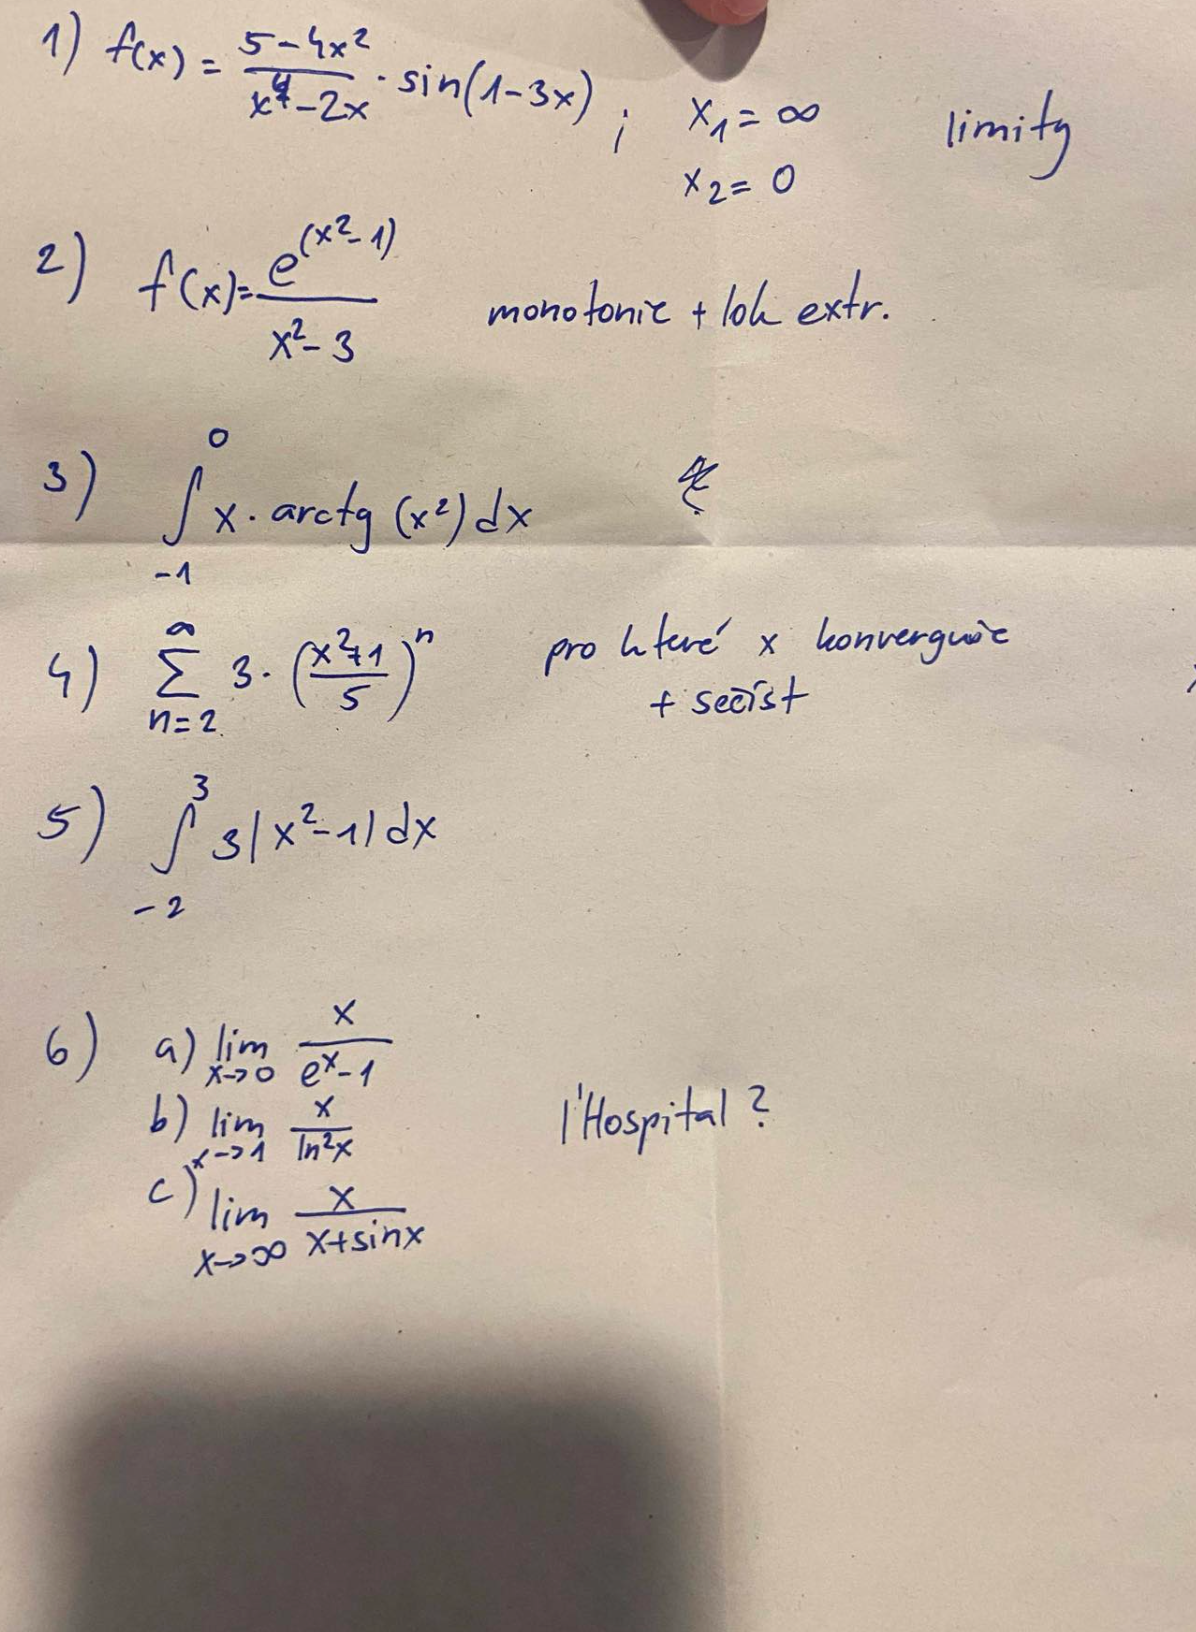 1) f(x) = (5-4x²)/(x⁴-2x) · sin(1-3x) ; x₁ = ∞ limity
x₂ = 0
2) f(x) = e^(x²-1)/(x²-3) monotonie + lok extr.
3) ∫₋₁⁰ x · arctg (x²) dx
4) ∑ n=2 ∞ 3 · ((x²+1)/5)ⁿ pro které x konverguje
+ sečíst
5) ∫₋₂³ 3|x²-1| dx
6) a) lim x→0 x/(eˣ-1)
b) lim x→1 x/ln²x l'Hospital?
c) lim x→∞ x/(x+sinx)